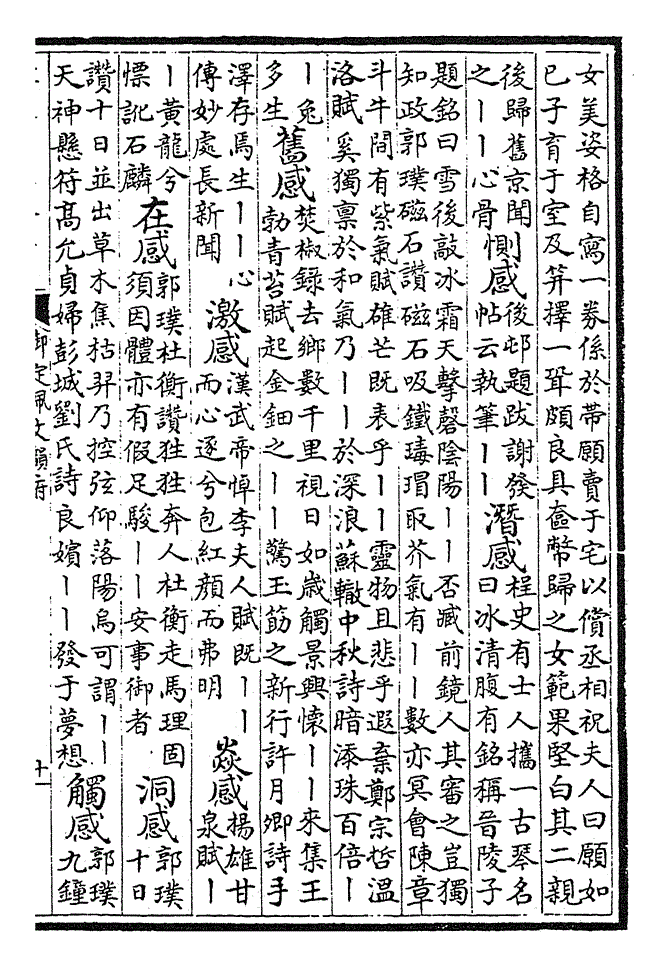 女美姿格自寫一券係於帶願賣于宅以償丞相祝夫人曰願如
已子育于室及笄擇一聟頗良具奩幣歸之女範果堅白其二親
後歸舊京聞
之丨丨心骨
惻感
後邨題跋謝發
帖云執筆丨丨
潛感
桯史有士人攜一古琴名
曰冰清腹有銘稱晉陵子
題銘曰雪後敲冰霜天擊磬陰陽丨丨否臧前鏡人其審之豈獨
知政郭璞磁石讚磁石吸鐵瑇瑁取芥氣有丨丨數亦冥會陳章
斗牛間有紫氣賦雄芒既表乎丨丨靈物且悲乎遐棄鄭宗哲溫
洛賦奚獨禀於和氣乃丨丨於深浪蘇轍中秋詩暗添珠百倍丨
丨兔
多生
舊感
焚椒錄去鄉數千里視日如歲觸景興懷丨丨來集王
勃青苔賦起金鈿之丨丨驚玉筯之新行許月卿詩手
澤存焉生丨丨心
傳妙處長新聞
激感
漢武帝悼李夫人賦既丨丨
而心逐兮包紅顏而弗明
焱感
揚雄甘
泉賦丨
丨黃龍兮
慓訛石麟
在感
郭璞杜衡讚狌狌奔人杜衡走馬理固
須因體亦有假足駿丨丨安事御者
洞感
郭璞
十日
讚十日並出草木焦枯羿乃控弦仰落陽烏可謂丨丨
天神懸符高允貞婦彭城劉氏詩良嬪丨丨發于夢想
觸感
郭璞
九鐘
御定佩文韻府